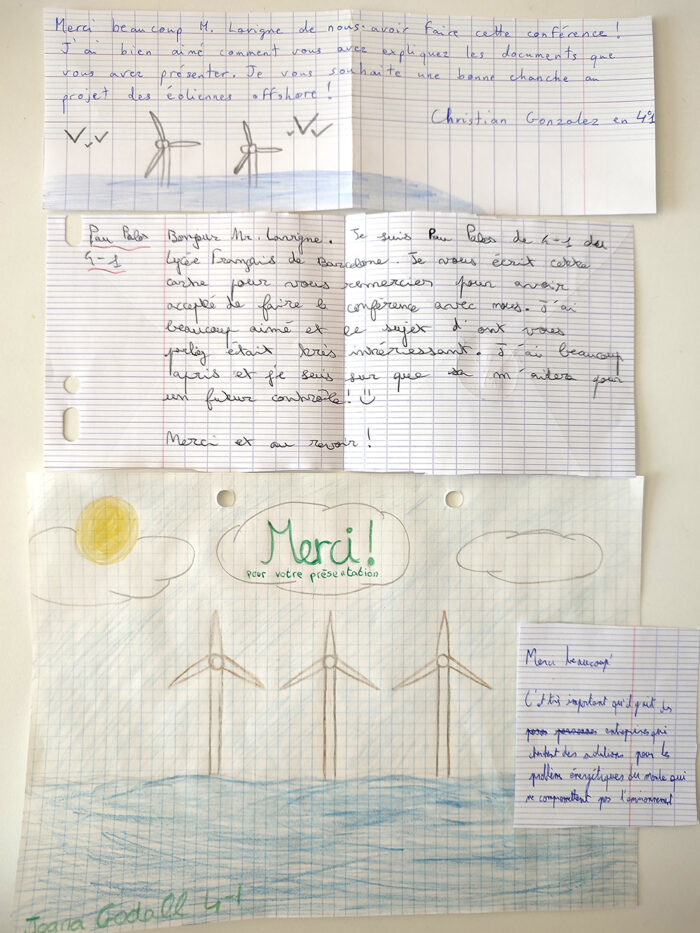 Merci beaucoup M. Lavigne de nous avoir faire cette conférence !
J'ai bien aimé comment vous avez expliquez les documents que
vous avez présenter. Je vous souhaite une bonne chanche au
projet des éoliennes offshore !
Christian Gonzalez en 4°1
Pau Palos
4-1
Bonjour Mr. Lavigne. Je suis Pau Palos de 4-1 du
Lycée Français de Barcelone. Je vous écrit cette
carte pour vous remercier pour avoir
accepté de faire la conférence avec nous. J'ai
beaucoup aimé et le sujet d'ont vous
parlez était très intréressant. J'ai beaucoup
apris et je suis sur que sa m'aidera pour
un futur contrôle! ☺
Merci et au revoir !
Merci!
pour votre présentation
Merci beaucoup!
C'est très important qu'il y ait des
entreprises qui
cherchent des solutions pour les
problèm énergétiques du monde qui
ne compromettent pas l'environnement
Joana Godall 4-1